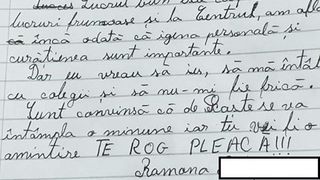 lucruri frumoase și la Centrul, am aflat
încă odată că igiena personală și
curățenia sunt importante.
Dar eu vreau să ies, să mă întâl
cu colegii și să nu-mi fie frică.
Sunt convinsă că de Paste se va
întâmpla o minune iar tu vei fi o
amintire TE ROG PLEACĂ!!!
Ramona